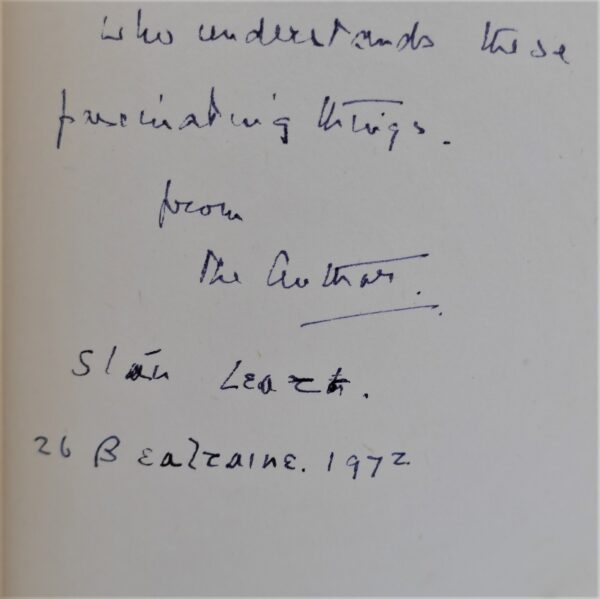 who understands these
fascinating things.
from
The Author.
Slán Leat.
26 Bealtaine. 1972